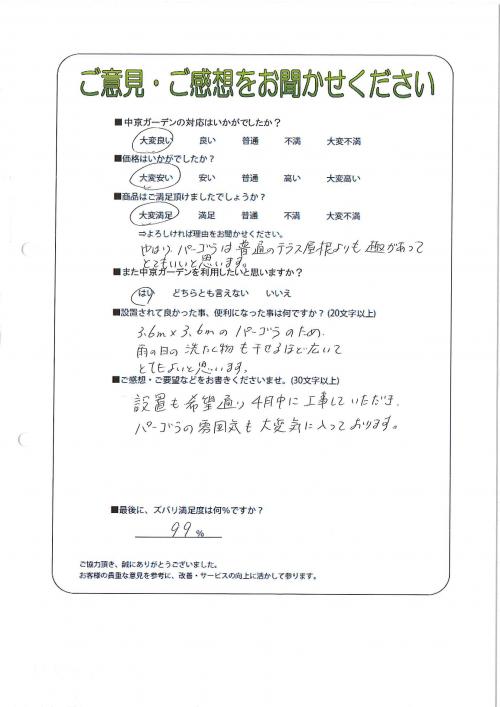 ご意見・ご感想をお聞かせください
■中京ガーデンの対応はいかがでしたか？
大変良い 良い 普通 不満 大変不満
■価格はいかがでしたか？
大変安い 安い 普通 高い 大変高い
■商品はご満足頂けましたでしょうか？
大変満足 満足 普通 不満 大変不満
⇒よろしければ理由をお聞かせください。
やはり、パーゴラは普通のテラス屋根よりも趣があって
とてもいいと思います。
■また中京ガーデンを利用したいと思いますか？
はい どちらとも言えない いいえ
■設置されて良かった事、便利になった事は何ですか？(20文字以上)
3.6m×3.6mのパーゴラのため、
雨の日の洗たく物も干せるほど広いて
とてもよいと思います。
■ご感想・ご要望などをお書きくださいませ。(30文字以上)
設置も希望通り4月中に工事していただき、
パーゴラの雰囲気も大変気に入っております。
■最後に、ズバリ満足度は何％ですか？
99％
ご協力頂き、誠にありがとうございました。
お客様の貴重な意見を参考に、改善・サービスの向上に活かして参ります。